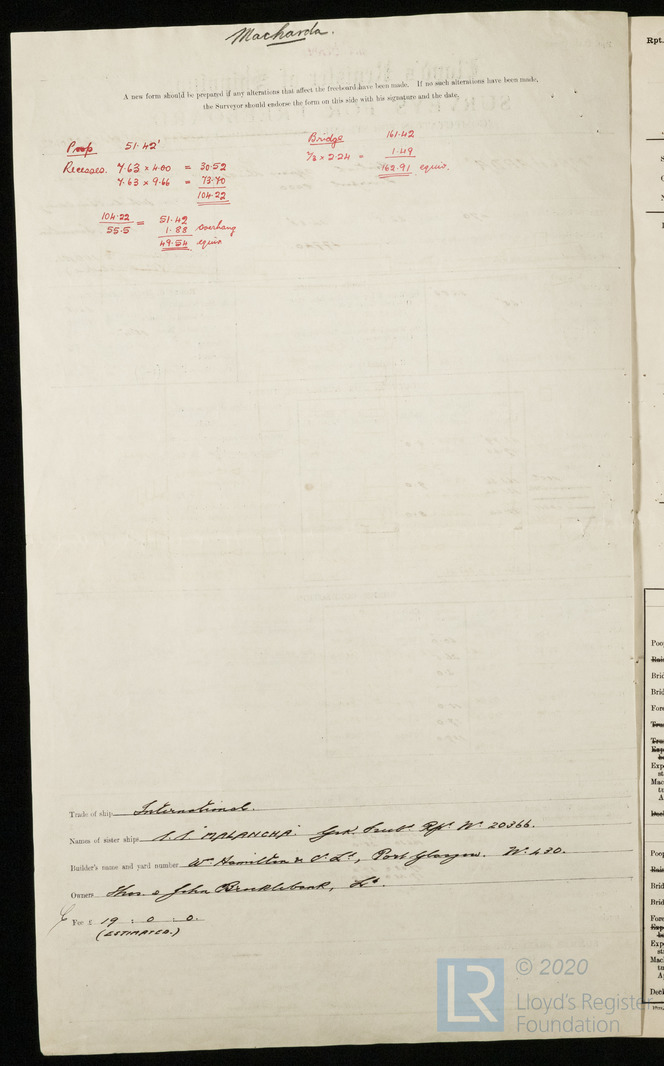 Macharda.
A new form should be prepared if any alterations that affect the freeboard have been made. If no such alterations have been made,
the Surveyor should endorse the form on this side with his signature and the date.
Poop 51.42'
Recesses. 7.63 x 4.00 = 30.52
7.63 x 9.66 = 73.70
104.22
104.22 / 55.5 = 51.42
1.88 overhang
49.54 equiv.
Bridge 161.42
2/3 x 2.24 = 1.49
162.91 equiv.
Trade of ship International.
Names of sister ships S.S "MALANCHA" Rpt. No 20366.
Builder's name and yard number Wm Hamilton & Co Ld, Port Glasgow. No 430.
Owners Thos. & John Brocklebank, Ld.
Fee £ 19 : 0 : 0.
(ESTIMATED.)
Rpt.
Poop
Brid
Brid
Fore
Expo
st
Mac
tu
Poop
Brid
Brid
Fore
Expo
st
Mac
tu
Deck
LR © 2020
Lloyd's Register
Foundation